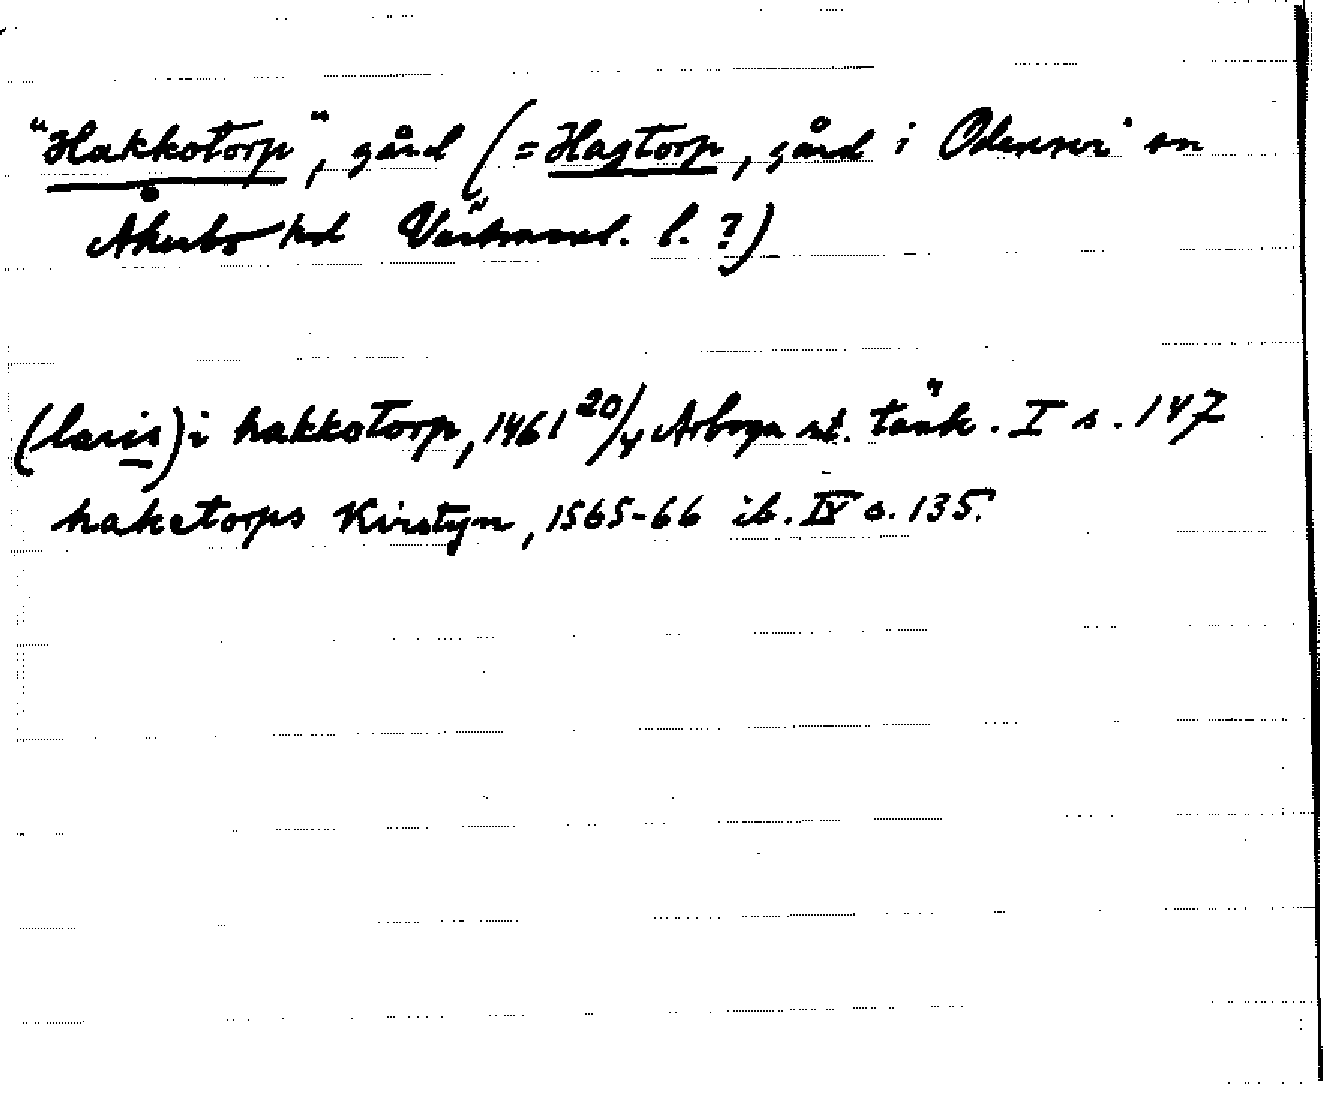 "Hakkotorp", gård (= Hagtorp, gård i Odensvi sn
Åkerbo hd Västmanl. l. ?)
(laris) i hakkotorp, 1461 20/4 Arboga st. tänk. I s. 147
haketorps Kirstyn, 1565-66 ib. IV s. 135.